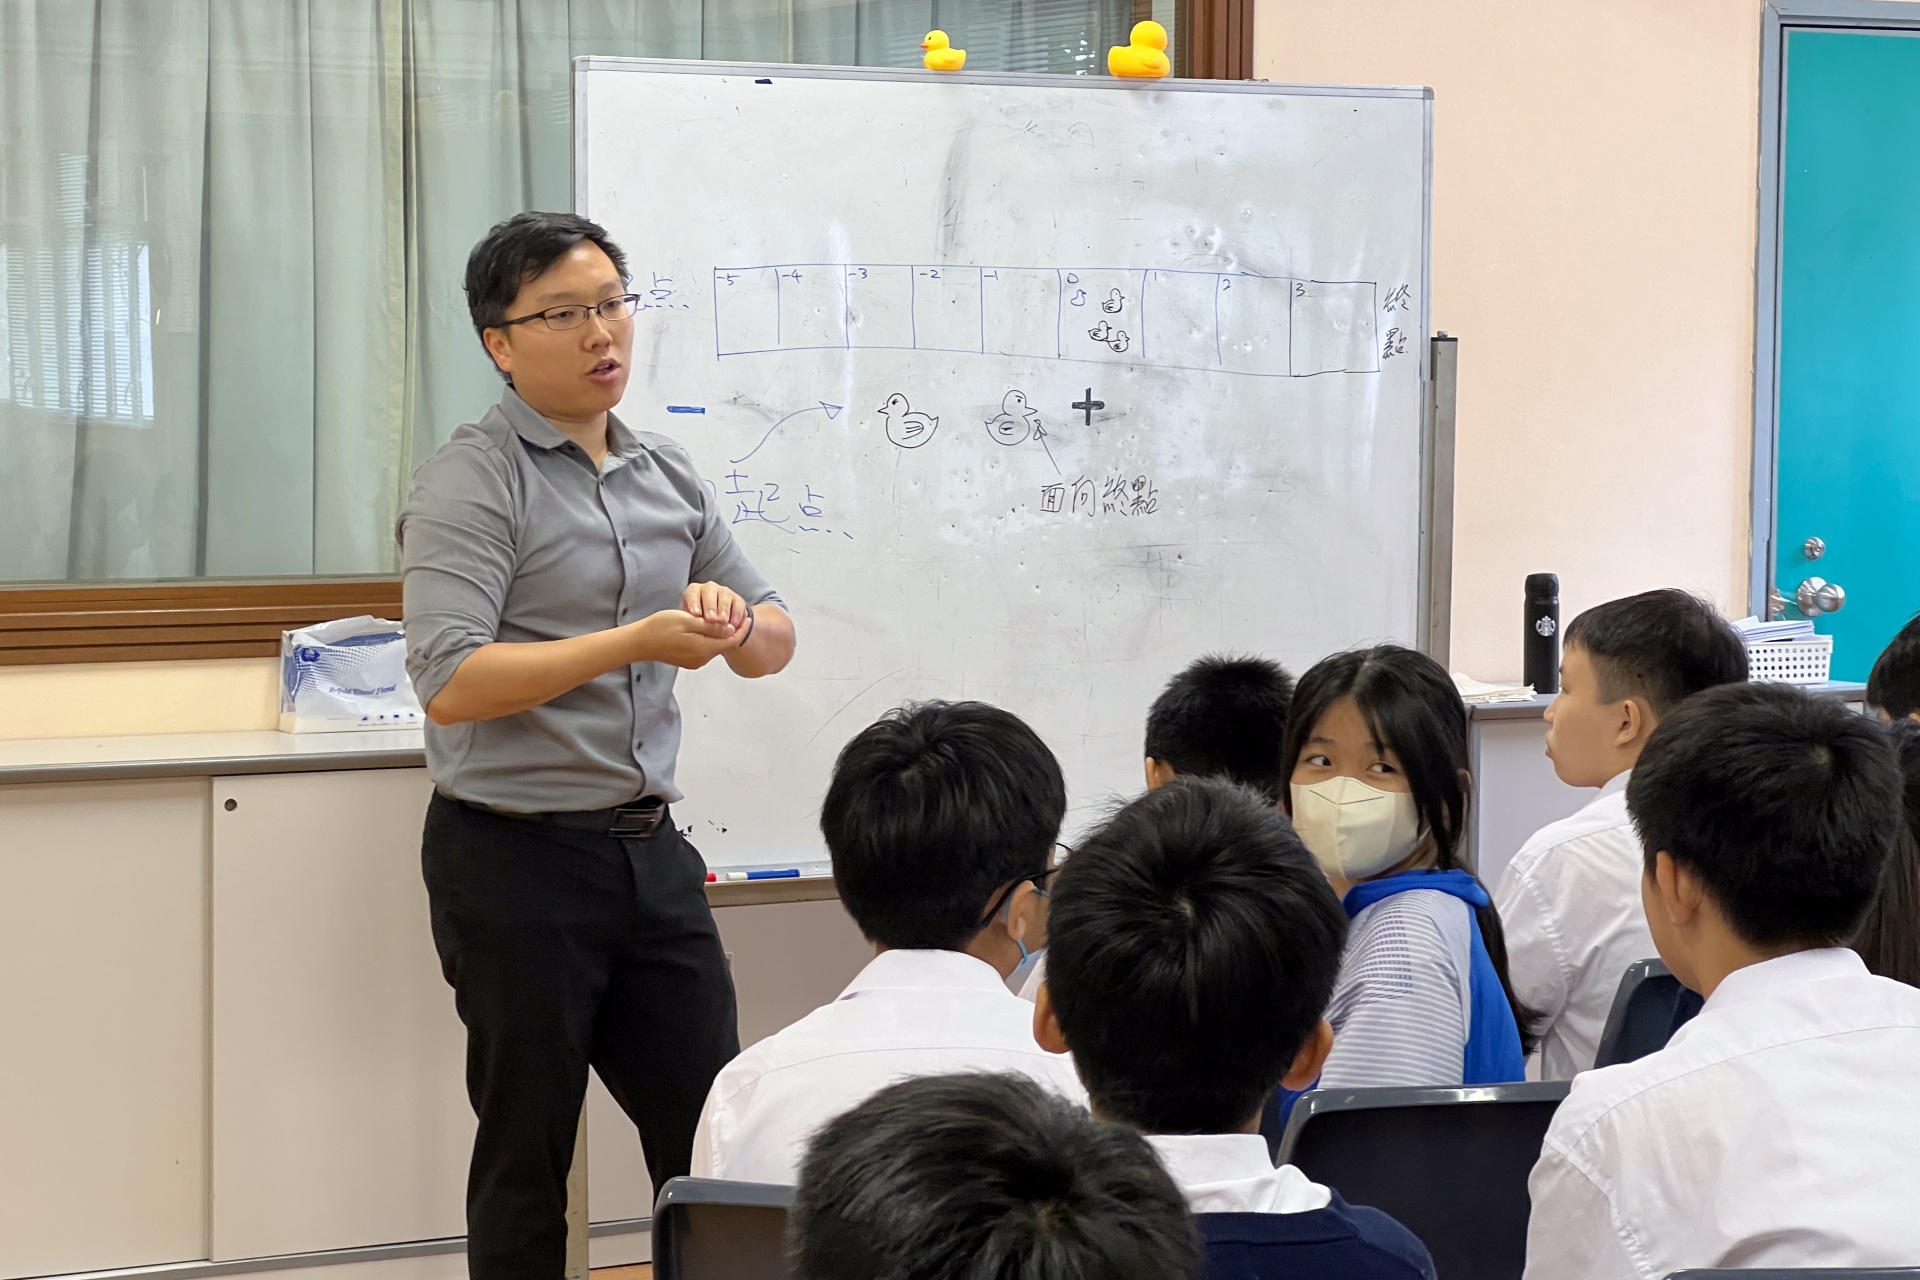 -5 -4 -3 -2 -1 0 1 2 3
点
終
點
- +
起点
面向終點